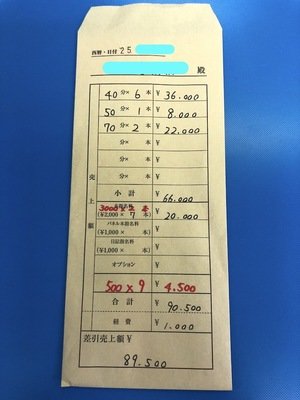 西暦・日付 25
殿
40分× 6本 ¥ 36.000
50分× 1本 ¥ 8.000
70分× 2本 ¥ 22.000
分× 本 ¥
分× 本 ¥
分× 本 ¥
売上額
小計 ¥ 66.000
3000×2本
(¥2,000× 7本) ¥ 20.000
パネル本指名料
(¥1,000× 本) ¥
日記指名料
(¥1,000× 本) ¥
オプション ¥
500×9 ¥ 4.500
合計 ¥ 90.500
経費 ¥ 1.000
差引売上額 ¥
89.500